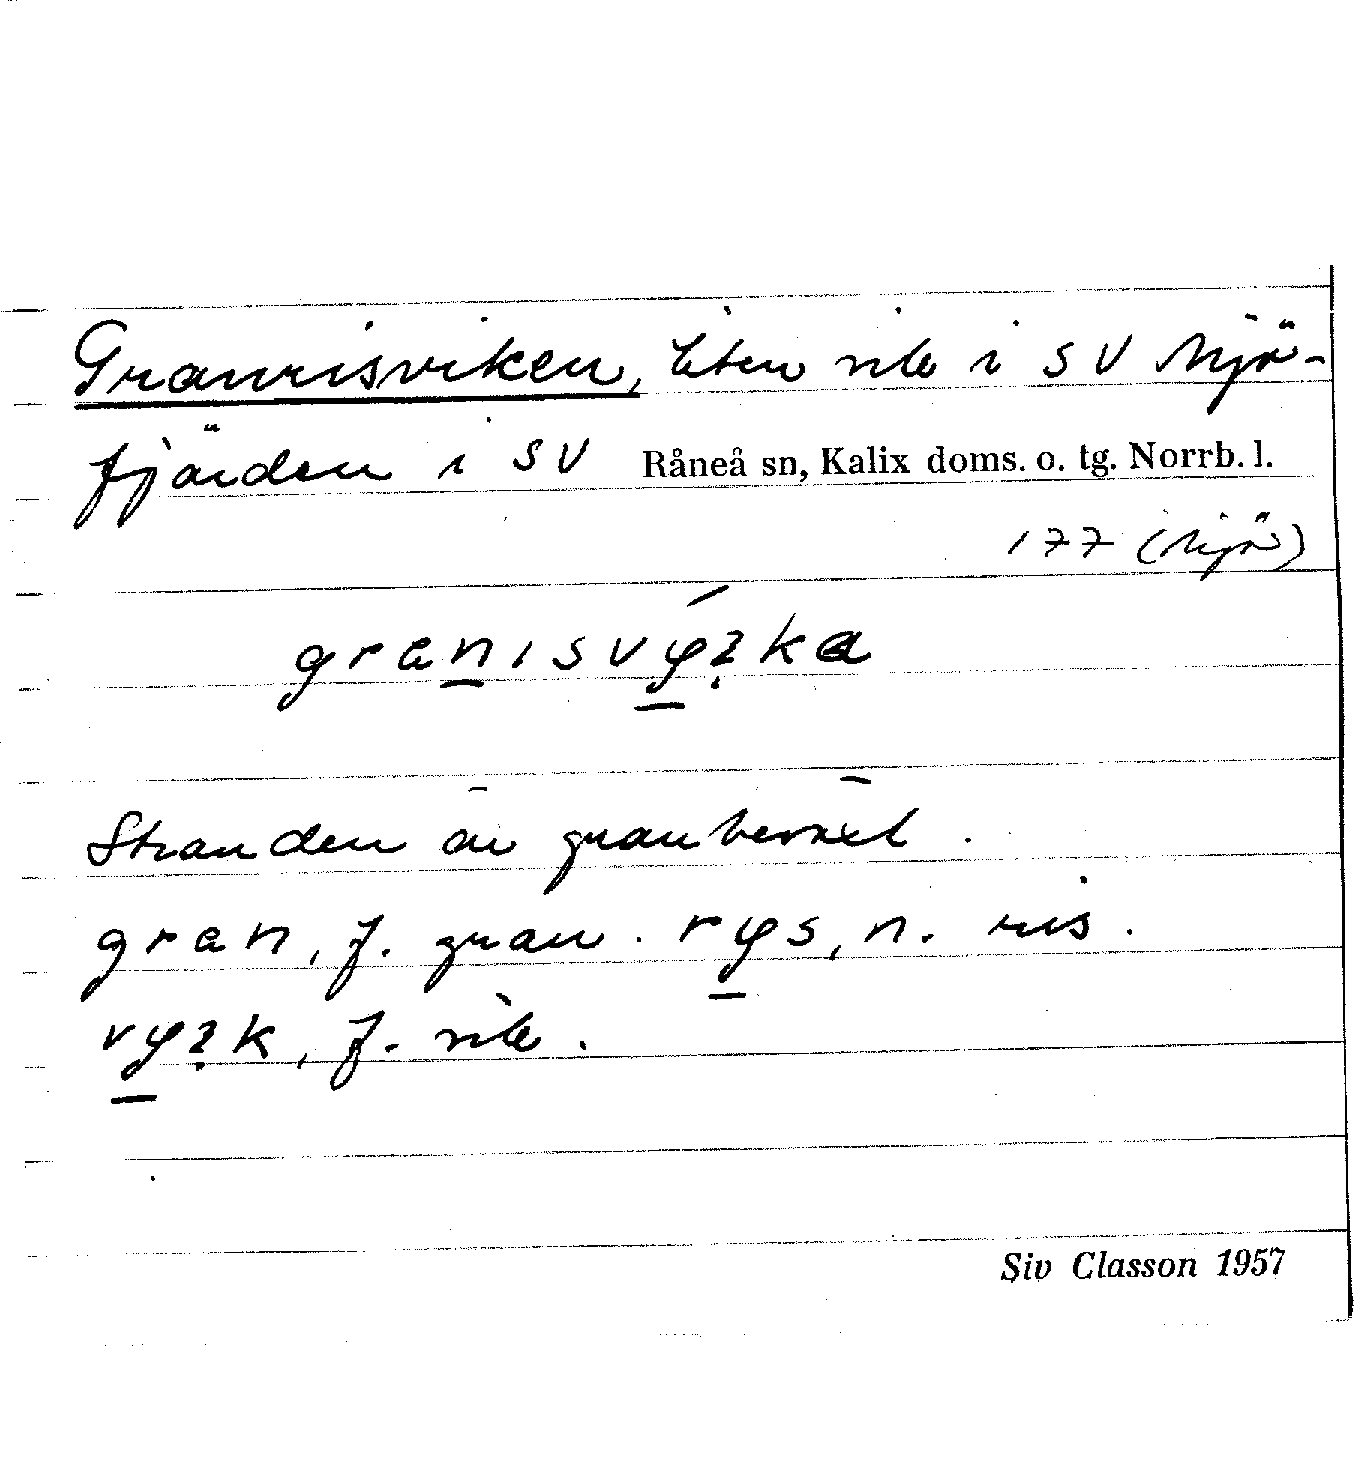 Granrisviken, liten vik i SV Mjö-
fjärden i SV Råneå sn, Kalix doms. o. tg. Norrb. l.
177 (Mjö)
Stranden är granbevuxet.
gran, f. gran. rys, n. ris.
k, f. vik.
Siv Classon 1957